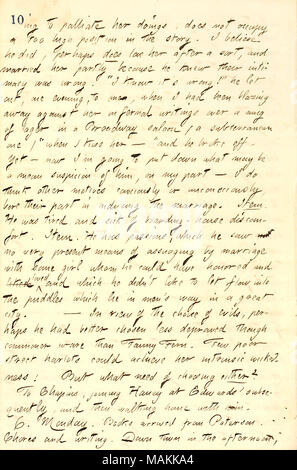 10
ing to palliate her doings, does not occupy
a too high position in the story. I believe
he did, perhaps does love her after a sort, and
married her partly because he knew their inti-
macy was wrong! "I knew it's wrong!" he let
out, one evening, to me, when I had been blazing
away against her infernal writings over a mug
of lager in a Broadway saloon, (a subterranean
one,) "when I kiss her — " and he broke off.
Yet — now I'm going to put down what may be
a mean suspicion of him, on my part — I do
think other motives consciously or unconsciously
bore their part in inducing the marriage. Item.
He was tired and sick of boarding house discom-
fort. Item. He has passions, which he saw
no very present means of assuaging by marriage
with some girl whom he could have honored and
loved, and which he didn't like to let flow into
the puddles which lie in men's way in a great
city. — In view of the choice of evils, per-
haps he had better chosen less depraved though
commoner ware than Fanny Fern. Few poor
street harlots could achieve her intrinsic wicked-
ness! But what need of choosing either?
To Chapins, joining Haney at Edwards' subse-
quently, and then walking home with him.
6. Monday. Books arrived from Peterson.
Chores and writing. Down town in the afternoon,
alamy
Image ID: MAKKA4
www.alamy.com